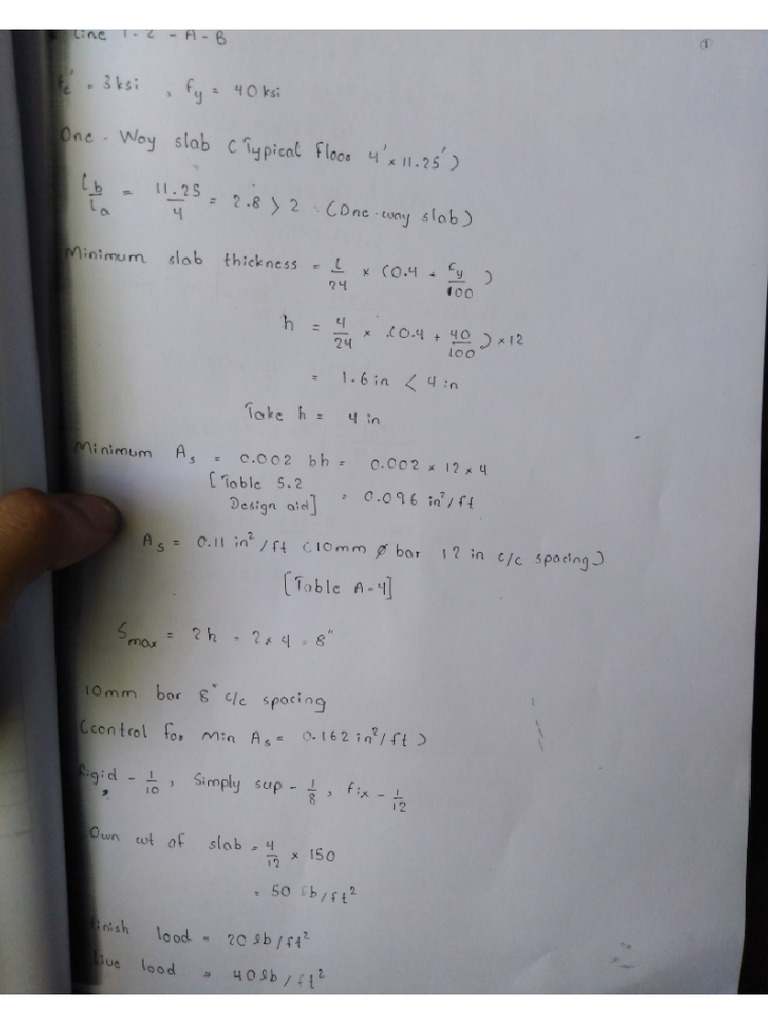 Line 1-2-A-B
①
fc' = 3 ksi , fy = 40 ksi
One-Way slab (Typical Floor 4' × 11.25')
lb/la = 11.25/4 = 2.8 > 2 (One-way slab)
Minimum slab thickness = l/24 × (0.4 + fy/100)
h = 4/24 × (0.4 + 40/100) × 12
= 1.6 in < 4 in
Take h = 4 in
Minimum As = 0.002 bh = 0.002 × 12 × 4
[Table 5.2
Design aid] = 0.096 in²/ft
As = 0.11 in²/ft (10mm ø bar 12 in c/c spacing)
[Table A-4]
Smax = 2h = 2 × 4 = 8"
10mm bar 8" c/c spacing
(control for Min As = 0.162 in²/ft)
Rigid - 1/10, Simply sup - 1/8, fix - 1/12
Own wt of slab = 4/12 × 150
= 50 lb/ft²
Finish load = 20 lb/ft²
Live load = 40 lb/ft²